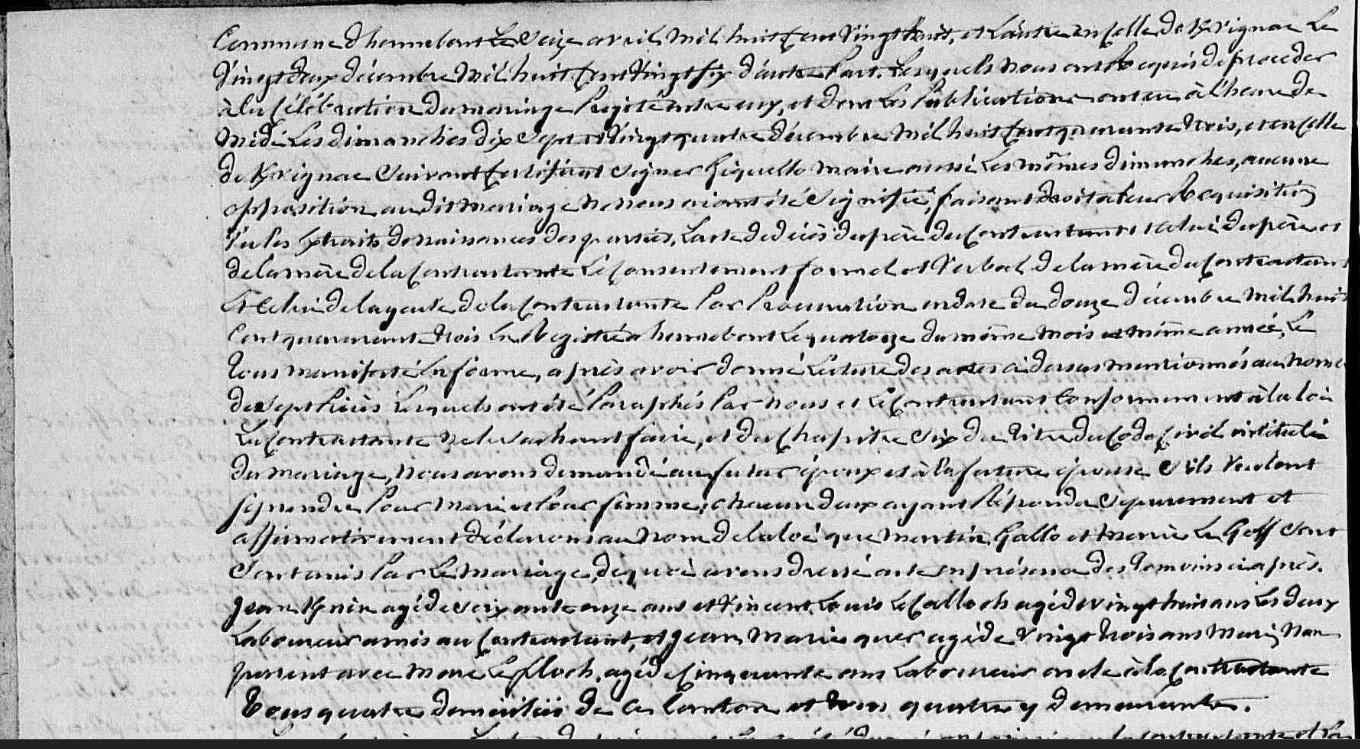 Commune d'hennebont Le Seize avril mil huit Cent Vingt huit, et L'autre en Celle de Kvignac Le
Vingt deux décembre mil huit Cent Vingt six d'autre Part. Lesquels nous ont Requis de proceder
à la Célébration du mariage Projeté entre eux, et dont Les Publications ont eu à l'heure de
Midi Les dimanches dix Sept et Vingt quatre décembre mil huit Cent quarante trois, et en Celle
de Kvignac Suivant Certificat Signer maire aussi Les mêmes dimanches, aucune
opposition au dit mariage ne nous aiant été Signifié, faisant droit à leur Requisition
Vu les Extraits de naissances des parties, L'acte de décès du père du Contractant et Celui du père et
de la mère de la Contractante Le Consentement formel et Verbal de la mère du Contractant
Et Celui de la Contractante Par Procuration en date du douze décembre mil huit
Cent quarante trois En Registré à hennebont Le quatorze du même mois et même année, Le
Tous manifesté En forme, après avoir donné Lecture des actes ci dessus mentionnés au nombre
de Sept Pièces Lesquels ont été Paraphés Par nous et Le Contractant Conformément à la loi
La Contractante ne le Sachant faire, et du Chapitre Six du Titre du Code Civil intitulé
du mariage, nous avons demandé au futur époux et à la future épouse S'ils Veulent
Se prendre Pour Mari et Pour femme, chacun d'eux ayant Répondu Séparement et
affirmativement déclarons au nom de la loi que Martin Gallo et Marie Le Goff Sont
Sont unis Par Le Mariage, de quoi avons dressé acte en présence des Temoins ci après.
Jean agé de Soixante onze ans et Vincent Louis Le Calloch agé de vingt huit ans Les deux
Laboureurs amis au Contractant, et Jean Marie agé de Vingt trois ans Marin Non
parent avec Marc Le floch, agé de Cinquante ans Laboureur oncle à la Contractante
Tous quatre domiciliés de Ce Canton et tous quatre y demeurants.